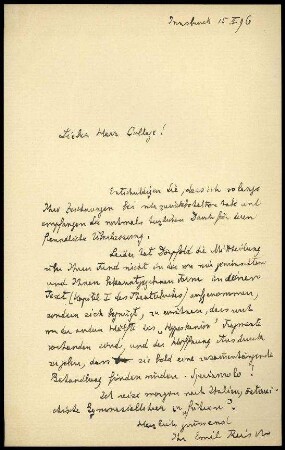 Innsbruck 15 X 96
Lieber Herr College!
Entschuldigen Sie, dass ich so lange
Ihre Zeichnungen bei mir zurückbehalten habe und
empfangen Sie nochmals herzlichen Dank für deren
freundliche Überlassung.
Leider hat Dörpfeld die Mittheilung
über Ihren Fund nicht in die von mir
und Ihnen Form in seinen
Text (Kapitel I des Theaterbuches) aufgenommen,
sondern sich begnügt, zu erwähnen, dass noch
von der andern Hälfte des Hyposkenion Fragmente
vorhanden sind, und der Hoffnung Ausdruck
zu geben, dass sie bald eine zusammenhängende
Behandlung finden würden. Speriamolo!
Ich reise morgen nach Italien,
Gymnasiallehrer zu „führen“!
Herzlich grüssend
Ihr Emil Reisch